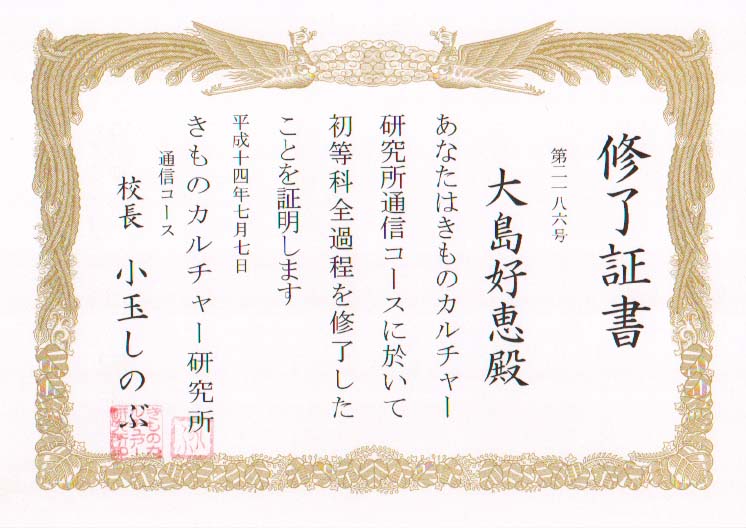 修了証書
第二一八六号
大島好恵殿
あなたはきものカルチャー
研究所通信コースに於いて
初等科全過程を修了した
ことを証明します
平成十四年七月七日
きものカルチャー研究所
通信コース
校長 小玉しのぶ
きものカ
ルチャー
研究所印